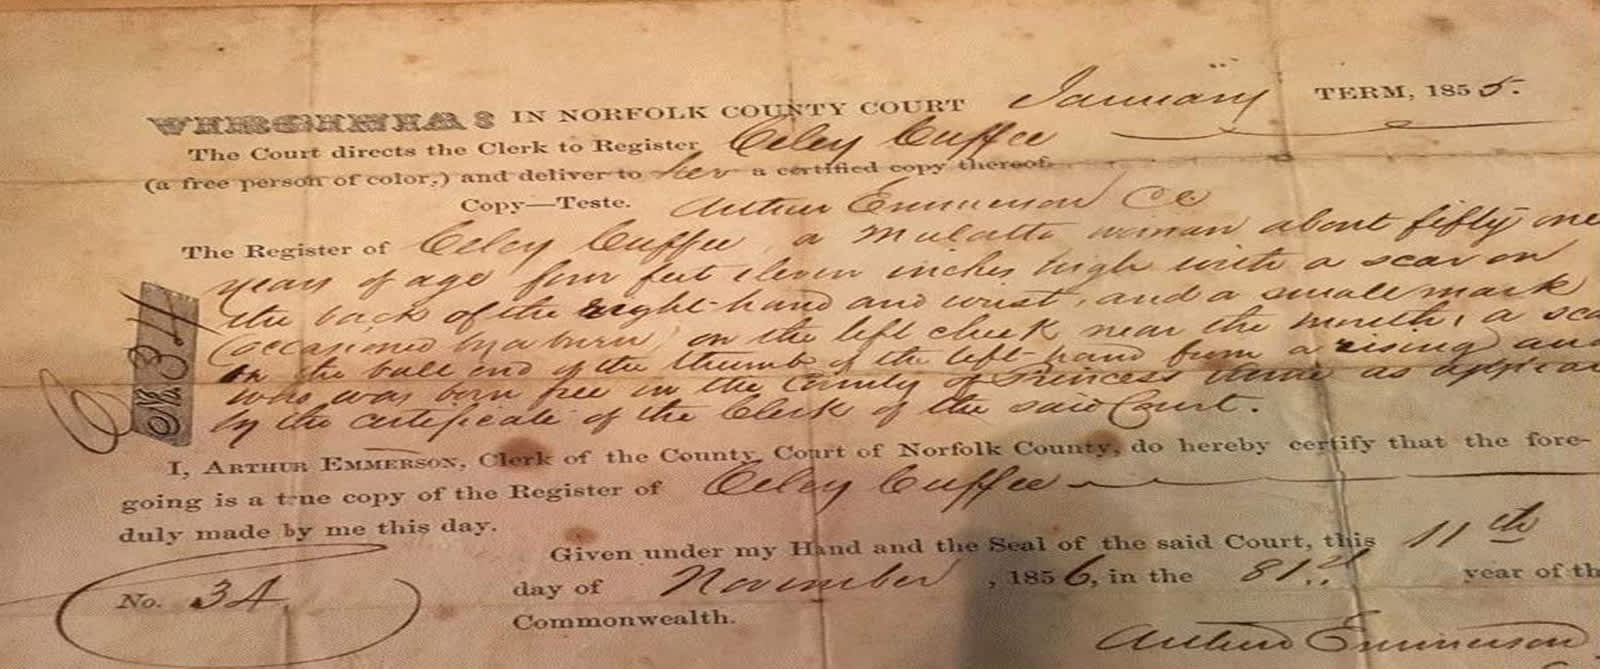 VIRGINIA: IN NORFOLK COUNTY COURT January TERM, 1855.
The Court directs the Clerk to Register Celey Cuffee
(a free person of color,) and deliver to her a certified copy thereof.
Copy—Teste. Arthur Emmerson CC
The Register of Celey Cuffee, a Mulatto woman about fifty one
years of age four feet eleven inches high with a scar on
the back of the right hand and wrist, and a small mark
(occasioned by a burn) on the left cheek near the mouth, a
on the ball end of the thumb of the left hand from a rising) and
who was born free in the County of Princess Anne as
by the certificate of the Clerk of the said Court.
No. 34
I, ARTHUR EMMERSON, Clerk of the County Court of Norfolk County, do hereby certify that the fore-
going is a true copy of the Register of Celey Cuffee
duly made by me this day.
Given under my Hand and the Seal of the said Court, this 11th
No. 34. day of November, 1856, in the 81st year of
Commonwealth.
Arthur Emmerson